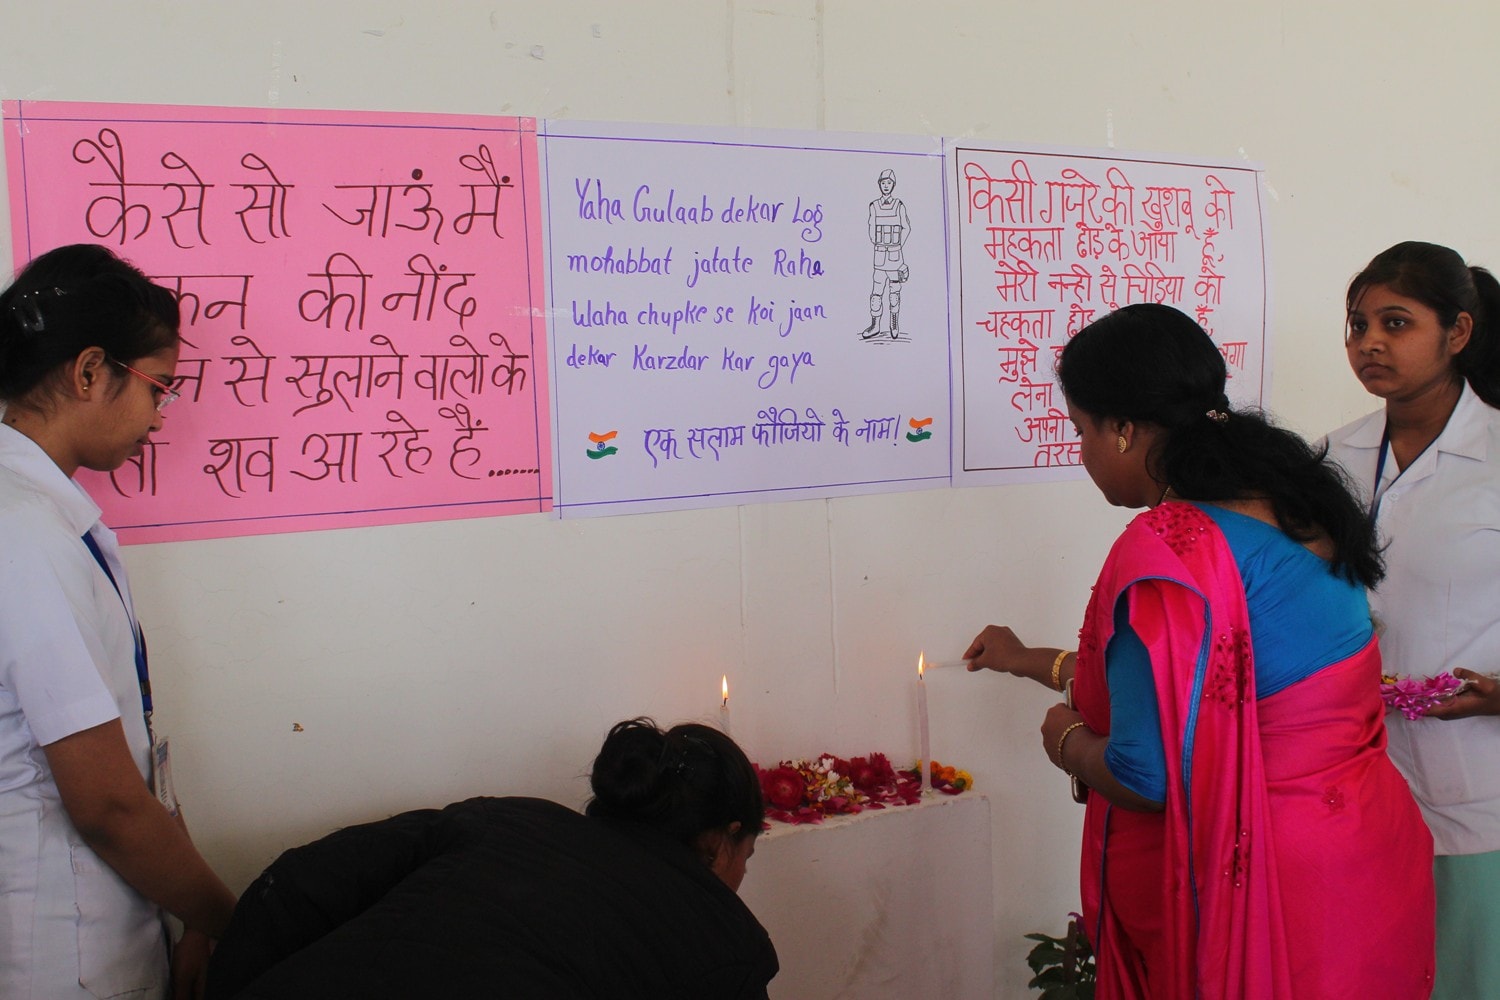 कैसे सो जाऊं मैं
की नींद
से सुलाने वालो के
शव आ रहे हैं.......
Yaha Gulaab dekar Log
mohabbat jatate Rahe
Waha chupke se koi jaan
dekar Karzdar Kar gaya
एक सलाम फौजियों के नाम!
किसी गजरे की खुशबू को
महकता छोड़ के आया हूँ,
मेरी नन्ही सू चिड़िया को
चहकता छोड़ हूँ,
मुझे
लेना
अपनी